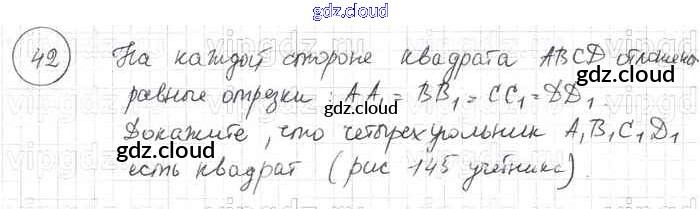 gdz.cloud
42 На каждой стороне квадрата ABCD отложены
равные отрезки: AA₁ = BB₁ = CC₁ = DD₁
gdz.cloud
gdz.cloud
gdz.cloud
Докажите, что четырехугольник A₁B₁C₁D₁
gdz.cloud
gdz.cloud
есть квадрат (рис 145 учебника).